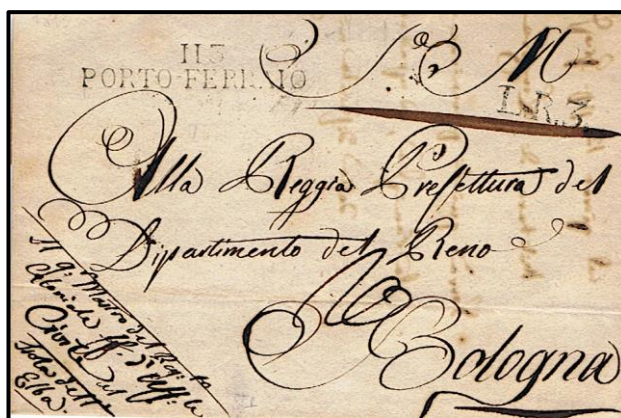 113
PORTO-FERRAIO
S. M.
L.R.3.
Alla Reggia Prefettura del
Dipartimento del Reno
Bologna
Il q. Mastro del Regg.to
Coloniale
Civile
Isola dell'
Elba.